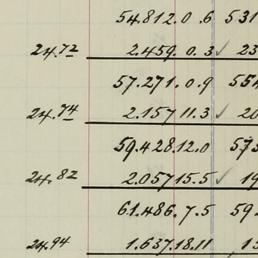 54.812.0.6 531
24.72 2.459.0.3 ✓ 23
57.271.0.9 554
24.74 2.157.11.3 ✓ 20
59.428.12.0 575
24.82 2.057.15.5 ✓ 19
61.486.7.5 59
24.94 1.637.18.11